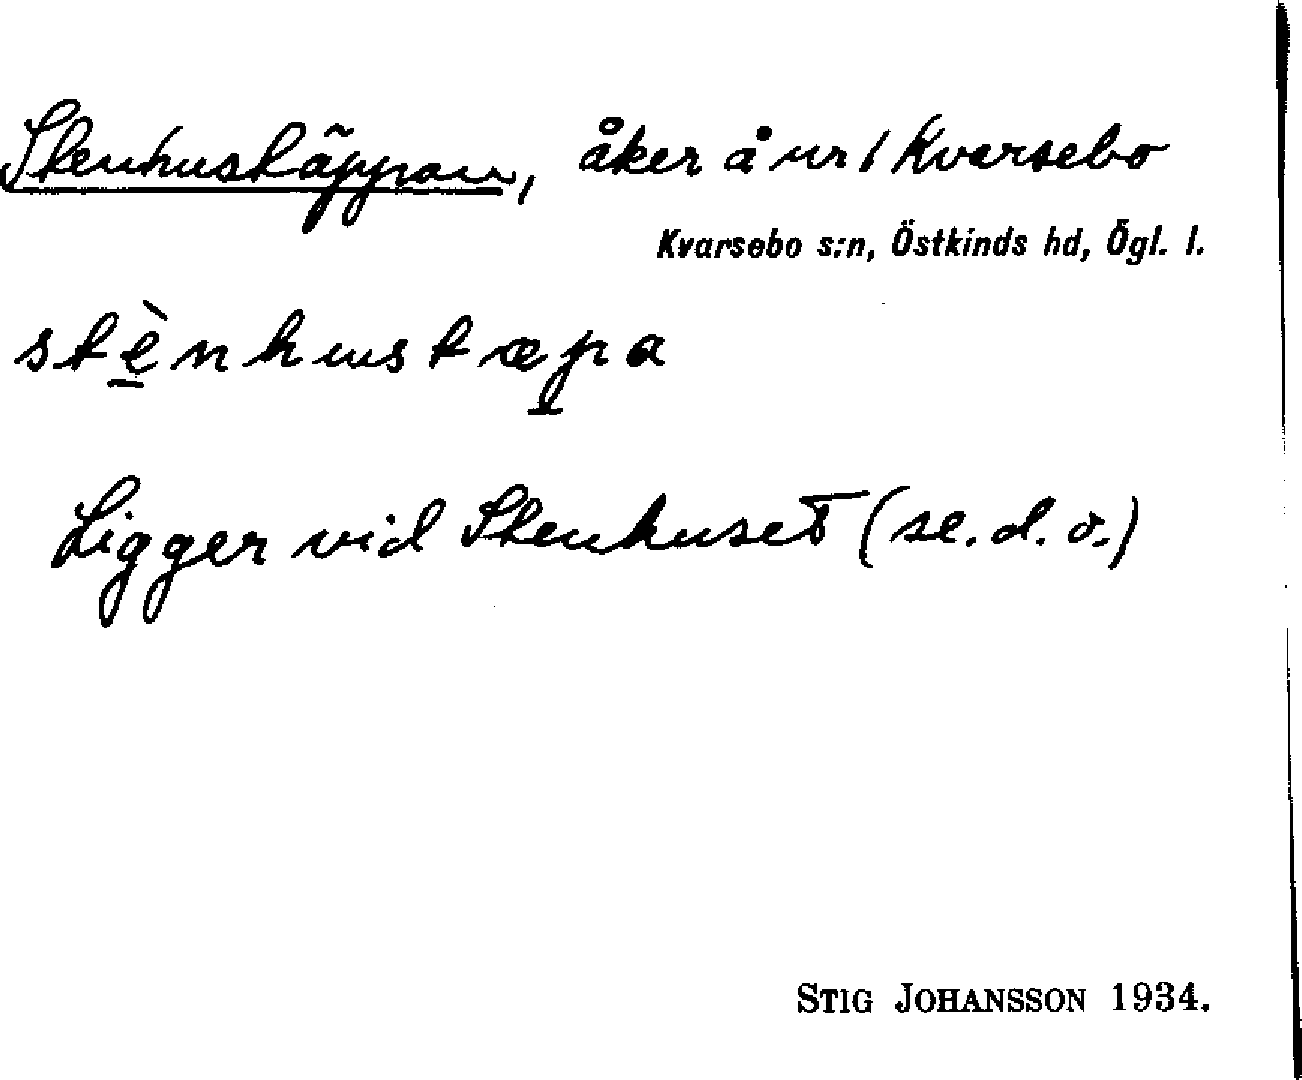 Stenhustäppan, åker å nr 1 Kvarsebo
Kvarsebo s:n, Östkinds hd, Ögl. l.
stènhustæpa
Ligger vid Stenhuset (se. d. o.)
STIG JOHANSSON 1934.